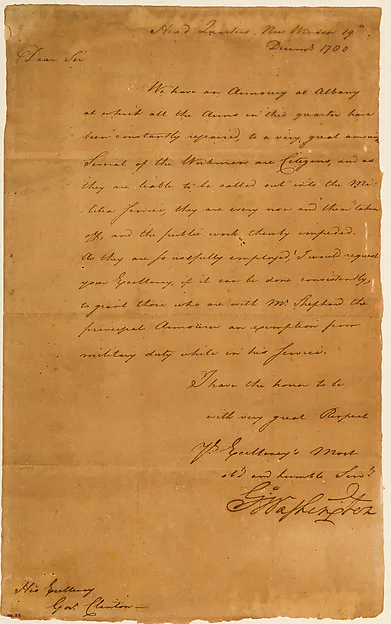 Head Quarters New Windsor 19th
Decemr 1780
Dear Sir
We have an Armoury at Albany
at which all the Arms in this quarter have
been constantly repaired, to a very great amount
Several of the Workmen are Citizens, and as
they are liable to be called out into the Mi-
litia Service, they are every now and then taken
off, and the public work thereby impeded.
As they are so usefully employed I would request
your Excellency, if it can be done consistently,
to grant those who are with Mr. Shephard the
principal Armourer an exemption from
military duty while in his Service.
I have the honor to be
with very great Respect
Yr Excellency's Most
obt and humble Servt
Go Washington
His Excellency
Govr Clinton